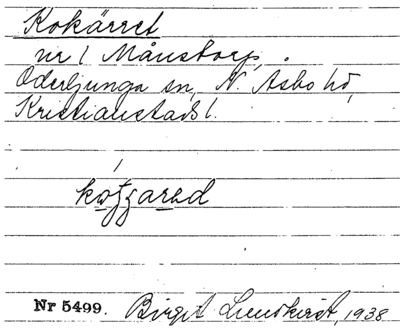 Kokärret
nr 1 Månstorp,
Oderljunga sn, N. Åsbo hd,
Kristianstads l.
Nr 5499. Birgit Lundkvist, 1938